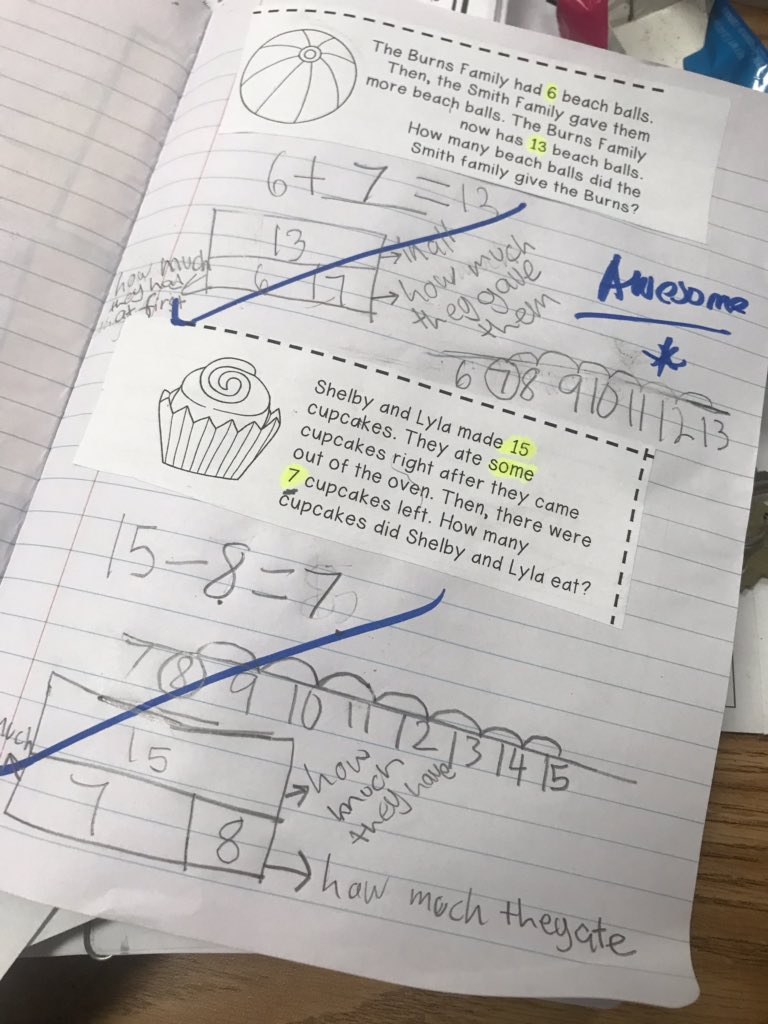 The Burns Family had 6 beach balls.
Then, the Smith Family gave them
more beach balls. The Burns Family
now has 13 beach balls.
How many beach balls did the
Smith family give the Burns?
6 + 7 = 13
13
6 7
in all
how much
they gave
them
how much
they had
at first
Awesome
6 7 8 9 10 11 12 13
Shelby and Lyla made 15
cupcakes. They ate some
cupcakes right after they came
out of the oven. Then, there were
7 cupcakes left. How many
cupcakes did Shelby and Lyla eat?
15 - 8 = 7
7 8 9 10 11 12 13 14 15
15
7 8
much
how
much
they have
haw much they ate